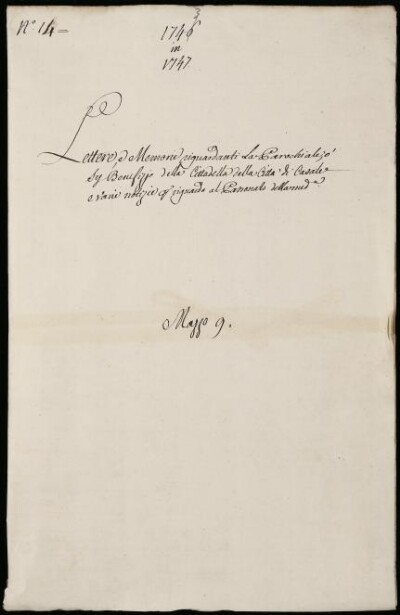 N.º 14 =
1746
3
in
1747
Lettere, e Memorie riguardanti la Parochiale, o
sij Benefizio della Cittadella della Città di Casale
e varie notizie riguardo al Patronato della med.ª
Mazzo 9.